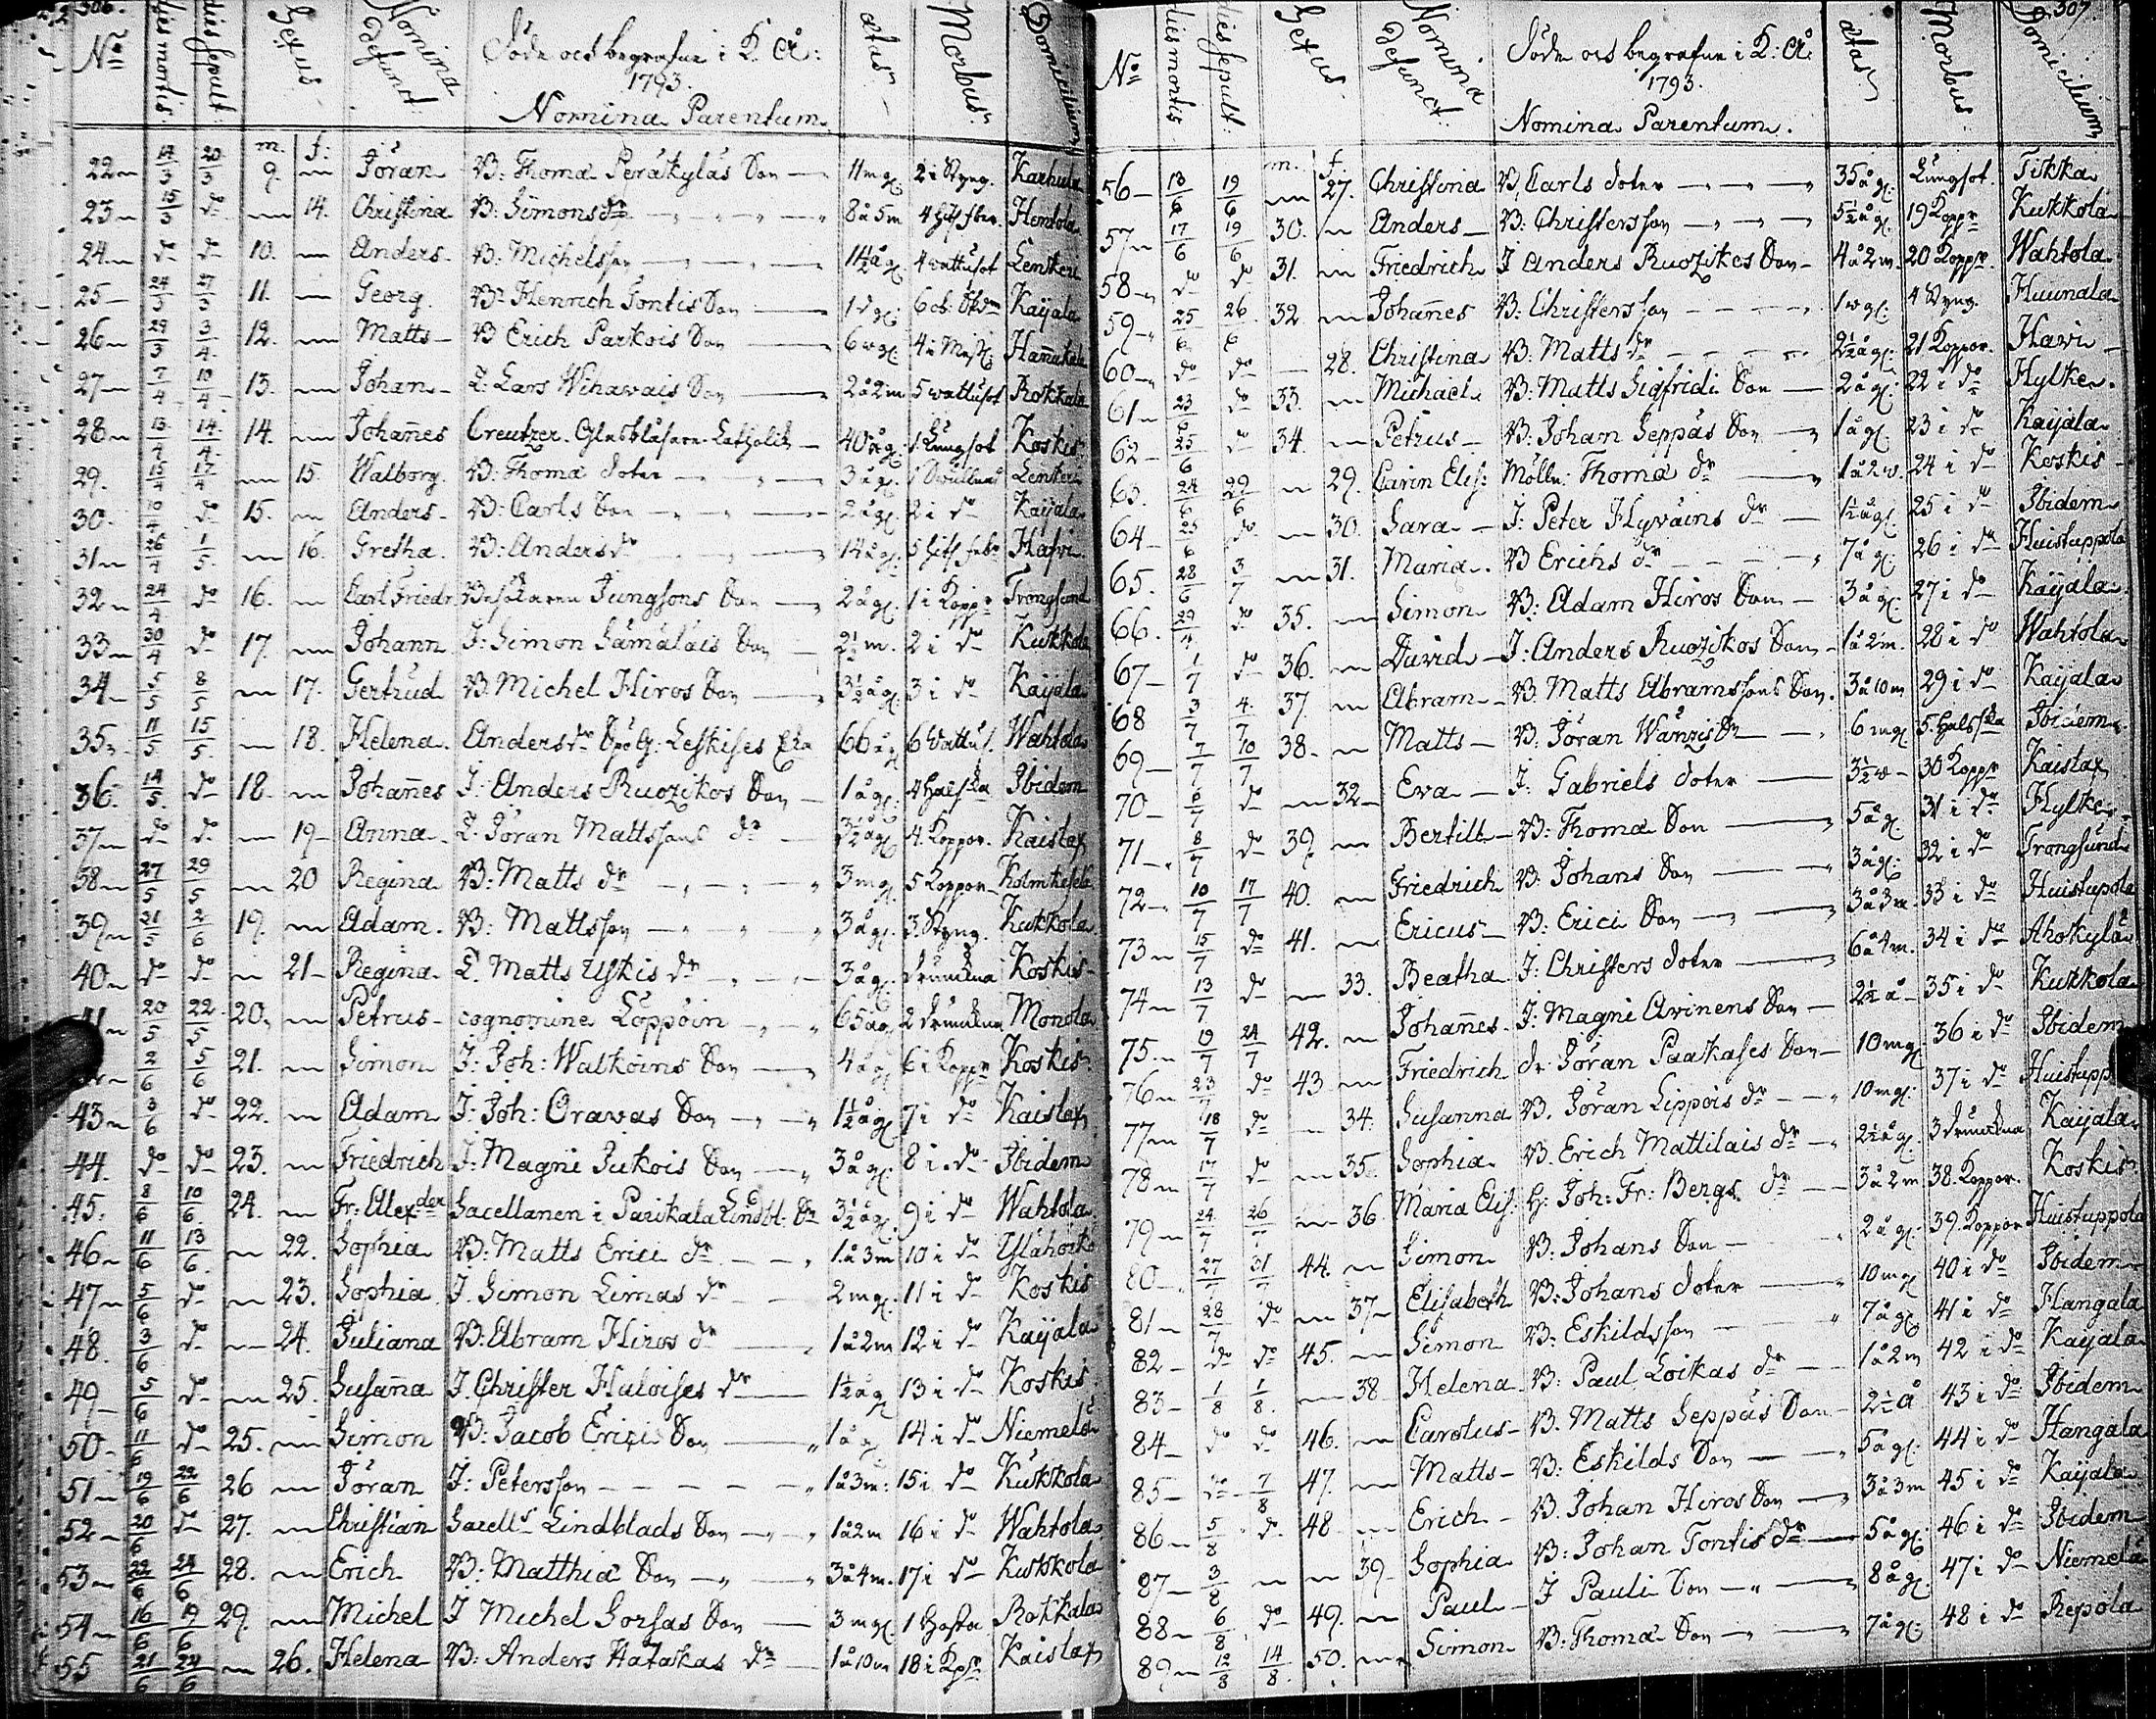 306.
No dies mortis dies sepult: Sexus Nomina defunct: Döde och begrafne i K. Å: 1793. Nomina Parentum ætas Morbus Domicilium
m. f:
22 14/3 20/3 9. Jöran B: Thomæ Peräkyläs Son 11 mgl. 2 i Styng. Karhula
23 15/3 do 14. Christina B: Simons dr 8 å 5 m 4 hits. feber. Hentola
24 do do 10. Anders B: Michelsson 11½ å gl. 4 wattusot Lenkeri
25 24/3 27/3 11. Georg. B: Henrich Tontis Son 1 d gl. 6 ob. Kajjala
26 29/3 3/4. 12. Matts B Erich Parkois Son 6 w gl.
27 7/4 10/4 13. Johan Lars Wihawais Son 2 å 2 m 5 wattusot Rokkala
28 13/4 14/4. 14. Johañes Creutzer. Glasblåsare Catholik 40 å gl. 1. Lungsot Koskis
29. 15/4 17/4 15. Walborg. B: Thomæ doter 3 å gl. Lenkeri
30. do 15. Anders B: Carls Son 2 å gl. 2 i do Kajjala
31 26/4 1/5. 16. Gretha. B: Anders dr 14 å gl. 5 hits febr Hafvi
32 24/4 do 16. Carl Friedr. Jungsons Son 2 å gl. 1 i Koppr Trongsund
33 30/4 do 17. Johann J: Simon Sämäläis Son 2½ m. 2 i do Kukkola
34 5/5 8/5 17. Gertrud B. Michel Hiros Son 3½ å gl. 3 i do Kajjala
35 11/5. 15/5. 18. Helena. Anders dr Leskises 66 å gl. 6 Wattus. Wahtola
36. 14/5. do 18. Johañes J: Anders Ruozikos Son 1 å gl. 4 Halssa Ibidem
37 do do 19 Anna Jöran Mattssons dr 3½ å gl. 4. Koppor. Kaislax
38 27/5 29/5 20 Regina B: Matts dr 3 mgl. 5 Koppor
39 31/5 2/6 19. Adam. B: Mattsson 3 å gl. 3. Styng. Kukkola
40 do do 21 Regina Matts Uskis dr 3 å gl. drunkna Koskis
41 20/5 22/5 20. Petrus cognomine Loppöin 65 å gl. 2 drunkna Monola
2/6 5/6 21. Simon J: Joh: Walkoins Son 4 å gl. 6 i Koppr Koskis
43 3/6 do 22. Adam J: Joh: Oravas Son 1½ å gl. 7 i do Kaislax
44. do do 23. Friedrich J: Magni Jukois Son 3 å gl. 8 i do Ibidem
45. 8/6 10/6. 24. Fr: Alexder Sacellanen i Parikala Lindbl. Sn 3½ å gl. 9 i do Wahtola
46 11/6 13/6. 22. Sophia B: Matts Erici dr 1 å 3 m 10 i do
47 5/6 do 23. Sophia J. Simon Limas dr 2 mgl. 11 i do Koskis
48. 3/6 do 24. Juliana B: Abram Hiros dr 1 å 2 m 12 i do Kajjala
49 5/6 do 25. Susaña J. Christer Haloises dr 1½ å gl. 13 i do Koskis
50 11/6 do 25. Simon B: Jacob Erici Son 1 å gl. 14 i do Niemelä
51 19/6 22/6 26 Jöran J: Petersson 1 å 3 m: 15 i do Kukkola
52 20/6 do 27. Christian Sacells Lindblads Son 1 å 2 m 16 i do Wahtola
53 22/6 24/6 28. Erich B: Matthiæ Son 3 å 4 m. 17 i do Kukkola
54 16/6 19/6 29. Michel J Michel Sorsas Son 3 mgl. 1 Hosta Rokkala
55 21/6 24/6 26. Helena B: Anders Hatakas dr 1 å 10 m 18 i Kopr Kaislax
307.
No dies mortis dies sepult: Sexus Nomina defunct. Döde och begrafne i K: Å: 1793. Nomina Parentum. ætas Morbus Domicilium
m. f.
56 13/6 19/6 27. Christina B. Carls doter 35 å gl. Lungsot. Tikka
57 17/6 19/6 30. Anders B: Christersson 5½ å gl. 19 Koppr Kukkola
58 do do 31. Friedrich J Anders Ruozikos Son 4 å 2 m. 20 Koppr. Wahtola
59 25/6 26/6 32. Johañes B: Christersson 1 w gl. 4 Styng. Huunala
60 do do 28. Christina B: Matts dr 2½ å gl. 21 Koppor. Havi
61 23/6 do 33. Michael B: Matts Sigfridi Son 2 å gl. 22 i do Hylke.
62 25/6 do 34. Petrus B: Johan Seppäs Son 1 å gl. 23 i do Kajjala
63. 24/6 29/6 29. Carin Elis: Mölln: Thomæ dr 1 å 2 w. 24 i do Koskis
64 25/6 do 30. Sara J: Peter Hyväins dr 1½ å gl. 25 i do Ibidem
65. 28/6 3/7 31. Maria B Erichs dr 7 å gl. 26 i do Huistuppola
66. 29/4 do 35. Simon B: Adam Hiros Son 3 å gl. 27 i do Kajjala
67 1/7 do 36. David J: Anders Ruozikos Son 1 å 2 m. 28 i do Wahtola
68 3/7 4/7 37. Abram B. Matts Abramssons Son. 3 å 10 m 29 i do Kajjala
69 7/7 10/7 38. Matts B. Jöran Wänzis Sn 6 mgl. 5. Halssa Ibidem
70 6/7 do 32 Eva J: Gabriels doter 3½ w 30 Koppr Kaislax
71 8/7 do 39. Bertill B: Thomæ Son 5 å gl. 31 i do Hylke
72 10/7 17/7 40. Friedrich B: Johans Son 3 å gl. 32 i do Trongsund
73 15/7 do 41. Ericus B: Erici Son 3 å 3 m. 33 i do Huistupola
74 13/7 do 33. Beatha J: Christers doter 6 å 4 m. 34 i do Ahokylä
75. 19/7 24/7 42. Johañes J: Magni Avinens Son 2½ å 35 i do Kukkola
76 23/7 do 43 Friedrich dr Jöran Paakases Son 10 mgl. 36 i do Ibidem
77 18/7 do 34. Susanna B. Jöran Lippois dr 10 mgl. 37 i do
78 17/7 do 35. Sophia B. Erich Mattilais dr 2½ å gl. 3 drunkna Kajjala
79 24/7 26/7 36. Maria Elis. H: Joh: Fr: Bergs dr 3 å 2 m 38. Koppor. Koskis
80 27/7 31/7 44. Simon B: Johans Son 2 å gl. 39. Koppor Huistuppola
81 28/7 do 37 Elisabeth B: Johans doter 10 mgl 40 i do Ibidem
82 do do 45. Simon B: Eskildsson 7 å gl. 41 i do Hangala
83 1/8 1/8. 38 Helena B: Paul Loikas dr 1 å 2 m 42 i do Kajjala
84 do do 46. Carolus B. Matts Seppäs Son 2½ å 43 i do Ibidem
85 do 7/8 47. Matts B: Eskilds Son 5 å gl. 44 i do Hangala
86 5/8 do 48 Erich B. Johan Hiros Son 3 å 3 m 45 i do Kajjala
87 3/8 39 Sophia B: Johan Tontis dr 5 å gl. 46 i do Ibidem
88 6/8 do 49. Paul J Pauli Son 8 å gl. 47 i do Niemelä
89 12/8 14/8. 50. Simon B: Thomæ Son 7 å gl. 48 i do Repola